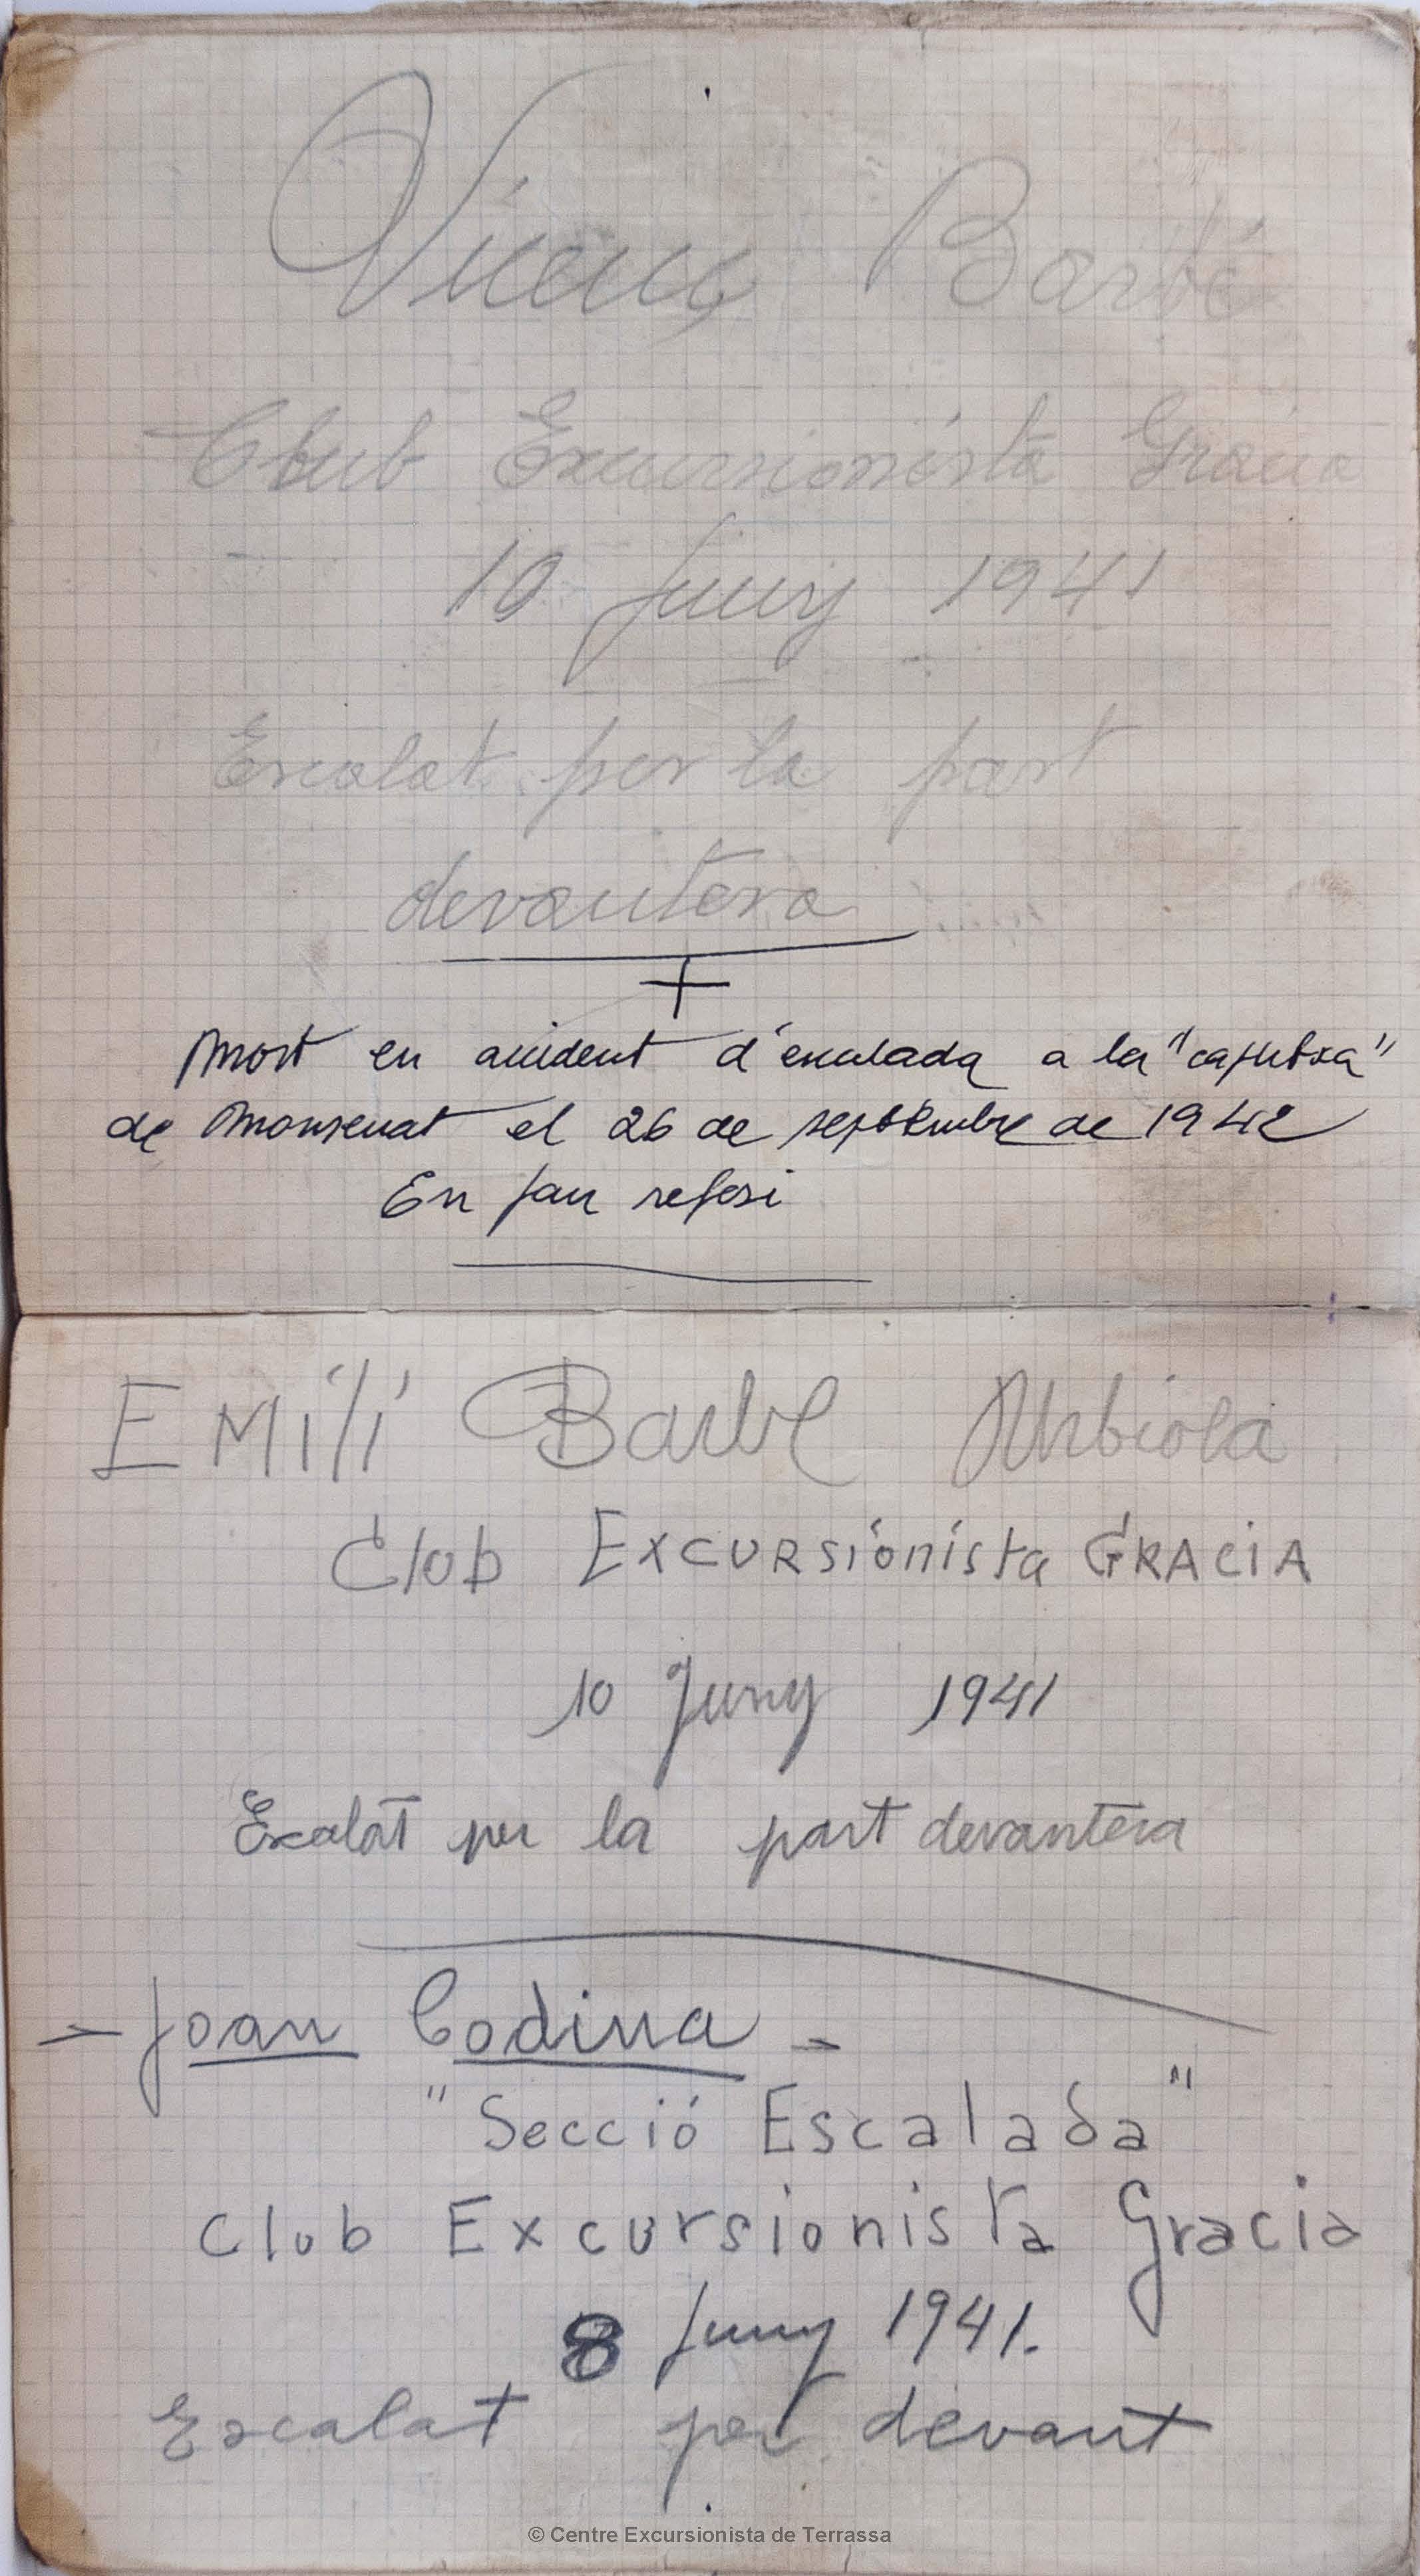 Vicenç Barbé
Club Excursionista Gràcia
10 Juny 1941
Escalat per la part
devantera
Mort en accident d'escalada a la "caputxa"
de Monserrat el 26 de septembre de 1942
En pau reposi
EMili Barbé Urbiola
Club Excursionista GRACIA
10 Juny 1941
Escalat per la part devantera
- Joan Codina -
"Secció Escalada"
Club Excursionista Gracia
8 Juny 1941.
Escalat per devant
© Centre Excursionista de Terrassa